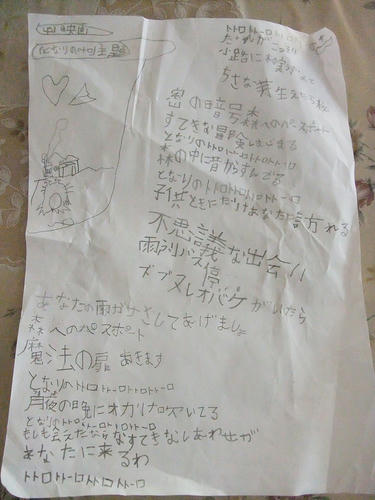 映画
となりのトトロ主題
トトロトトーロトトロトトーロ
だれかがこっそり
小路に木の実
ちさな芽生えたら
秘密の暗号森へのパスポート
すてきな冒険はじまる
となりのトトロトトーロトトロトトーロ
森の中に昔からすんでる
となりのトトロトトーロトトロトトーロ
子共ときにだけあなたに訪れる
不思議な出会い
雨ふりバス停
ズブヌレオバケがいたら
あなたの雨ガサさしてあげましょ
森へのパスポート
魔法の扉あきます
となりのトトロトトーロトトロトトーロ
月夜の晩にオカリナ吹いてる
となりのトトロトトーロトトロトトーロ
もしも会えたならすてきなしあわせが
あなたに来るわ
トトロトトーロトトロトトーロ